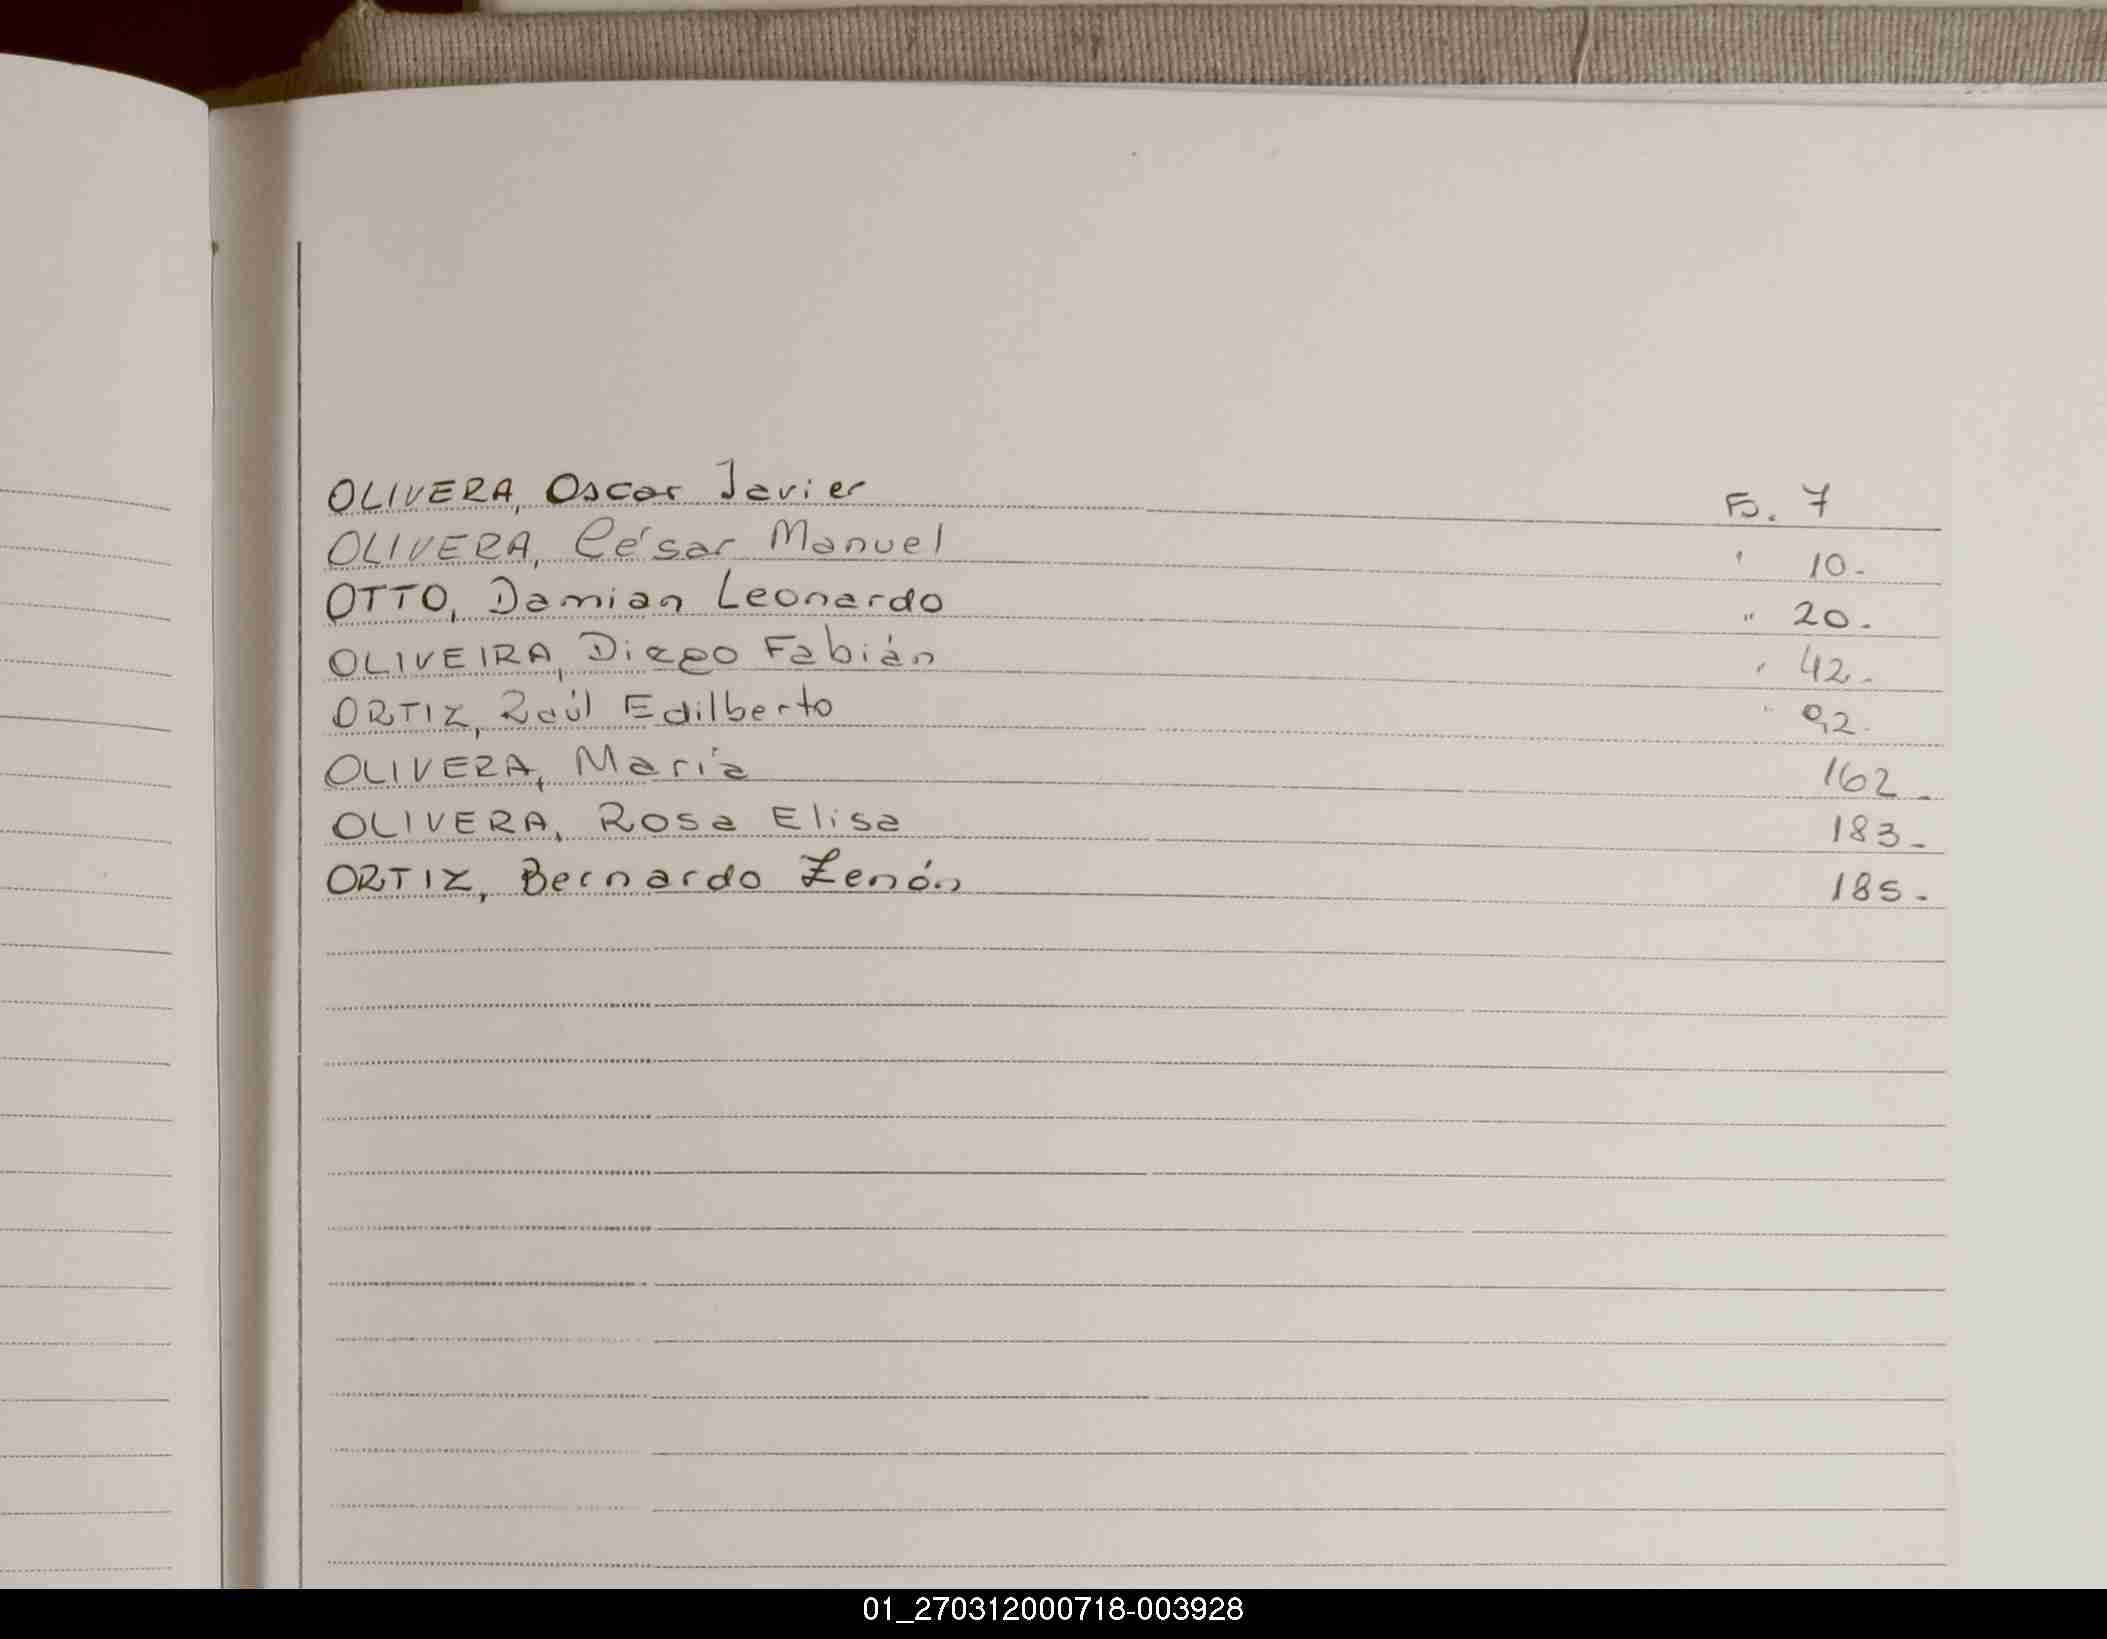 OLIVERA, Oscar Javier Fs. 7
OLIVERA, César Manuel " 10.-
OTTO, Damian Leonardo " 20.-
OLIVEIRA, Diego Fabián " 42.-
ORTIZ, Raúl Edilberto " 92.-
OLIVERA, María 162.-
OLIVERA, Rosa Elisa 183.-
ORTIZ, Bernardo Zenón 185.-
01_270312000718-003928